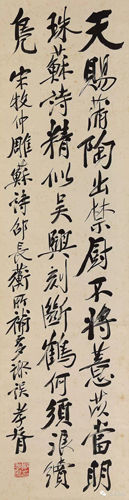 天賜蒲陶出禁厨不將薏苡當明
珠蘇詩精似吳興刻斷鶴何須浪續
鳧 宋牧仲雕蘇詩邵長蘅所補多謬误 孝胥